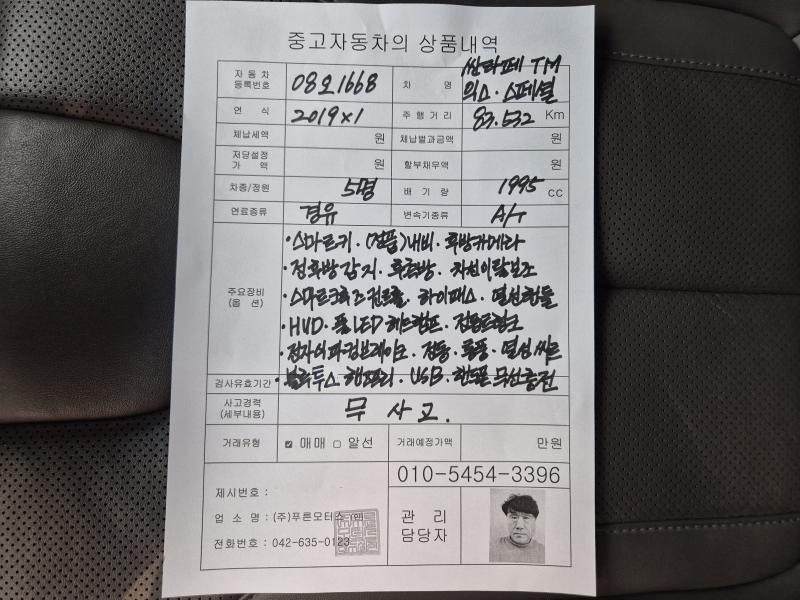 중고자동차의 상품내역
자 동 차 등록번호 08오1668 차 명 싼타페 TM
익스.스페셜
연 식 2019×1 주 행 거 리 83.532 Km
체납세액 원 체납벌과금액 원
저당설정 가 액 원 할부채무액 원
차종/정원 5명 배 기 량 1995 CC
연료종류 경유 변속기종류 A/T
주요장비 (옵 션)
·스마트키.(정품)내비.후방카메라
·전화방감지.후측방.차선이탈보조
·스마트크루즈컨트롤.하이패스.열선핸들
·HUD.풀LED헤드램프.전동트렁크
·전자식파킹브레이크.전동.통풍.열선씨트
·블루투스핸즈프리.USB.핸드폰무선충전
검사유효기간
사고경력 (세부내용) 무 사 고.
거래유형 매매 알선 거래예정가액 만원
010-5454-3396
제시번호 :
업 소 명 : (주)푸른모터스
전화번호 : 042-635-0123
관 리
담당자